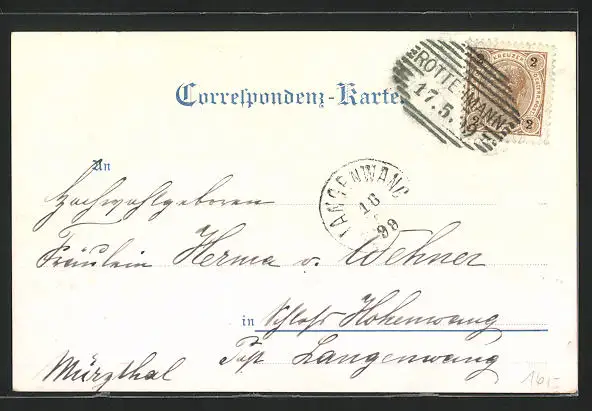 2 KREUZER 2
ROTTENMANN
17.5.9
2 2
Correspondenz-Karte
LANGENWANG
18
5
99
An
Hochwohlgeboren
Fräulein Herma v. Wehner
in Schloß Hohenwang
Post Langenwang
Mürzthal
16,-